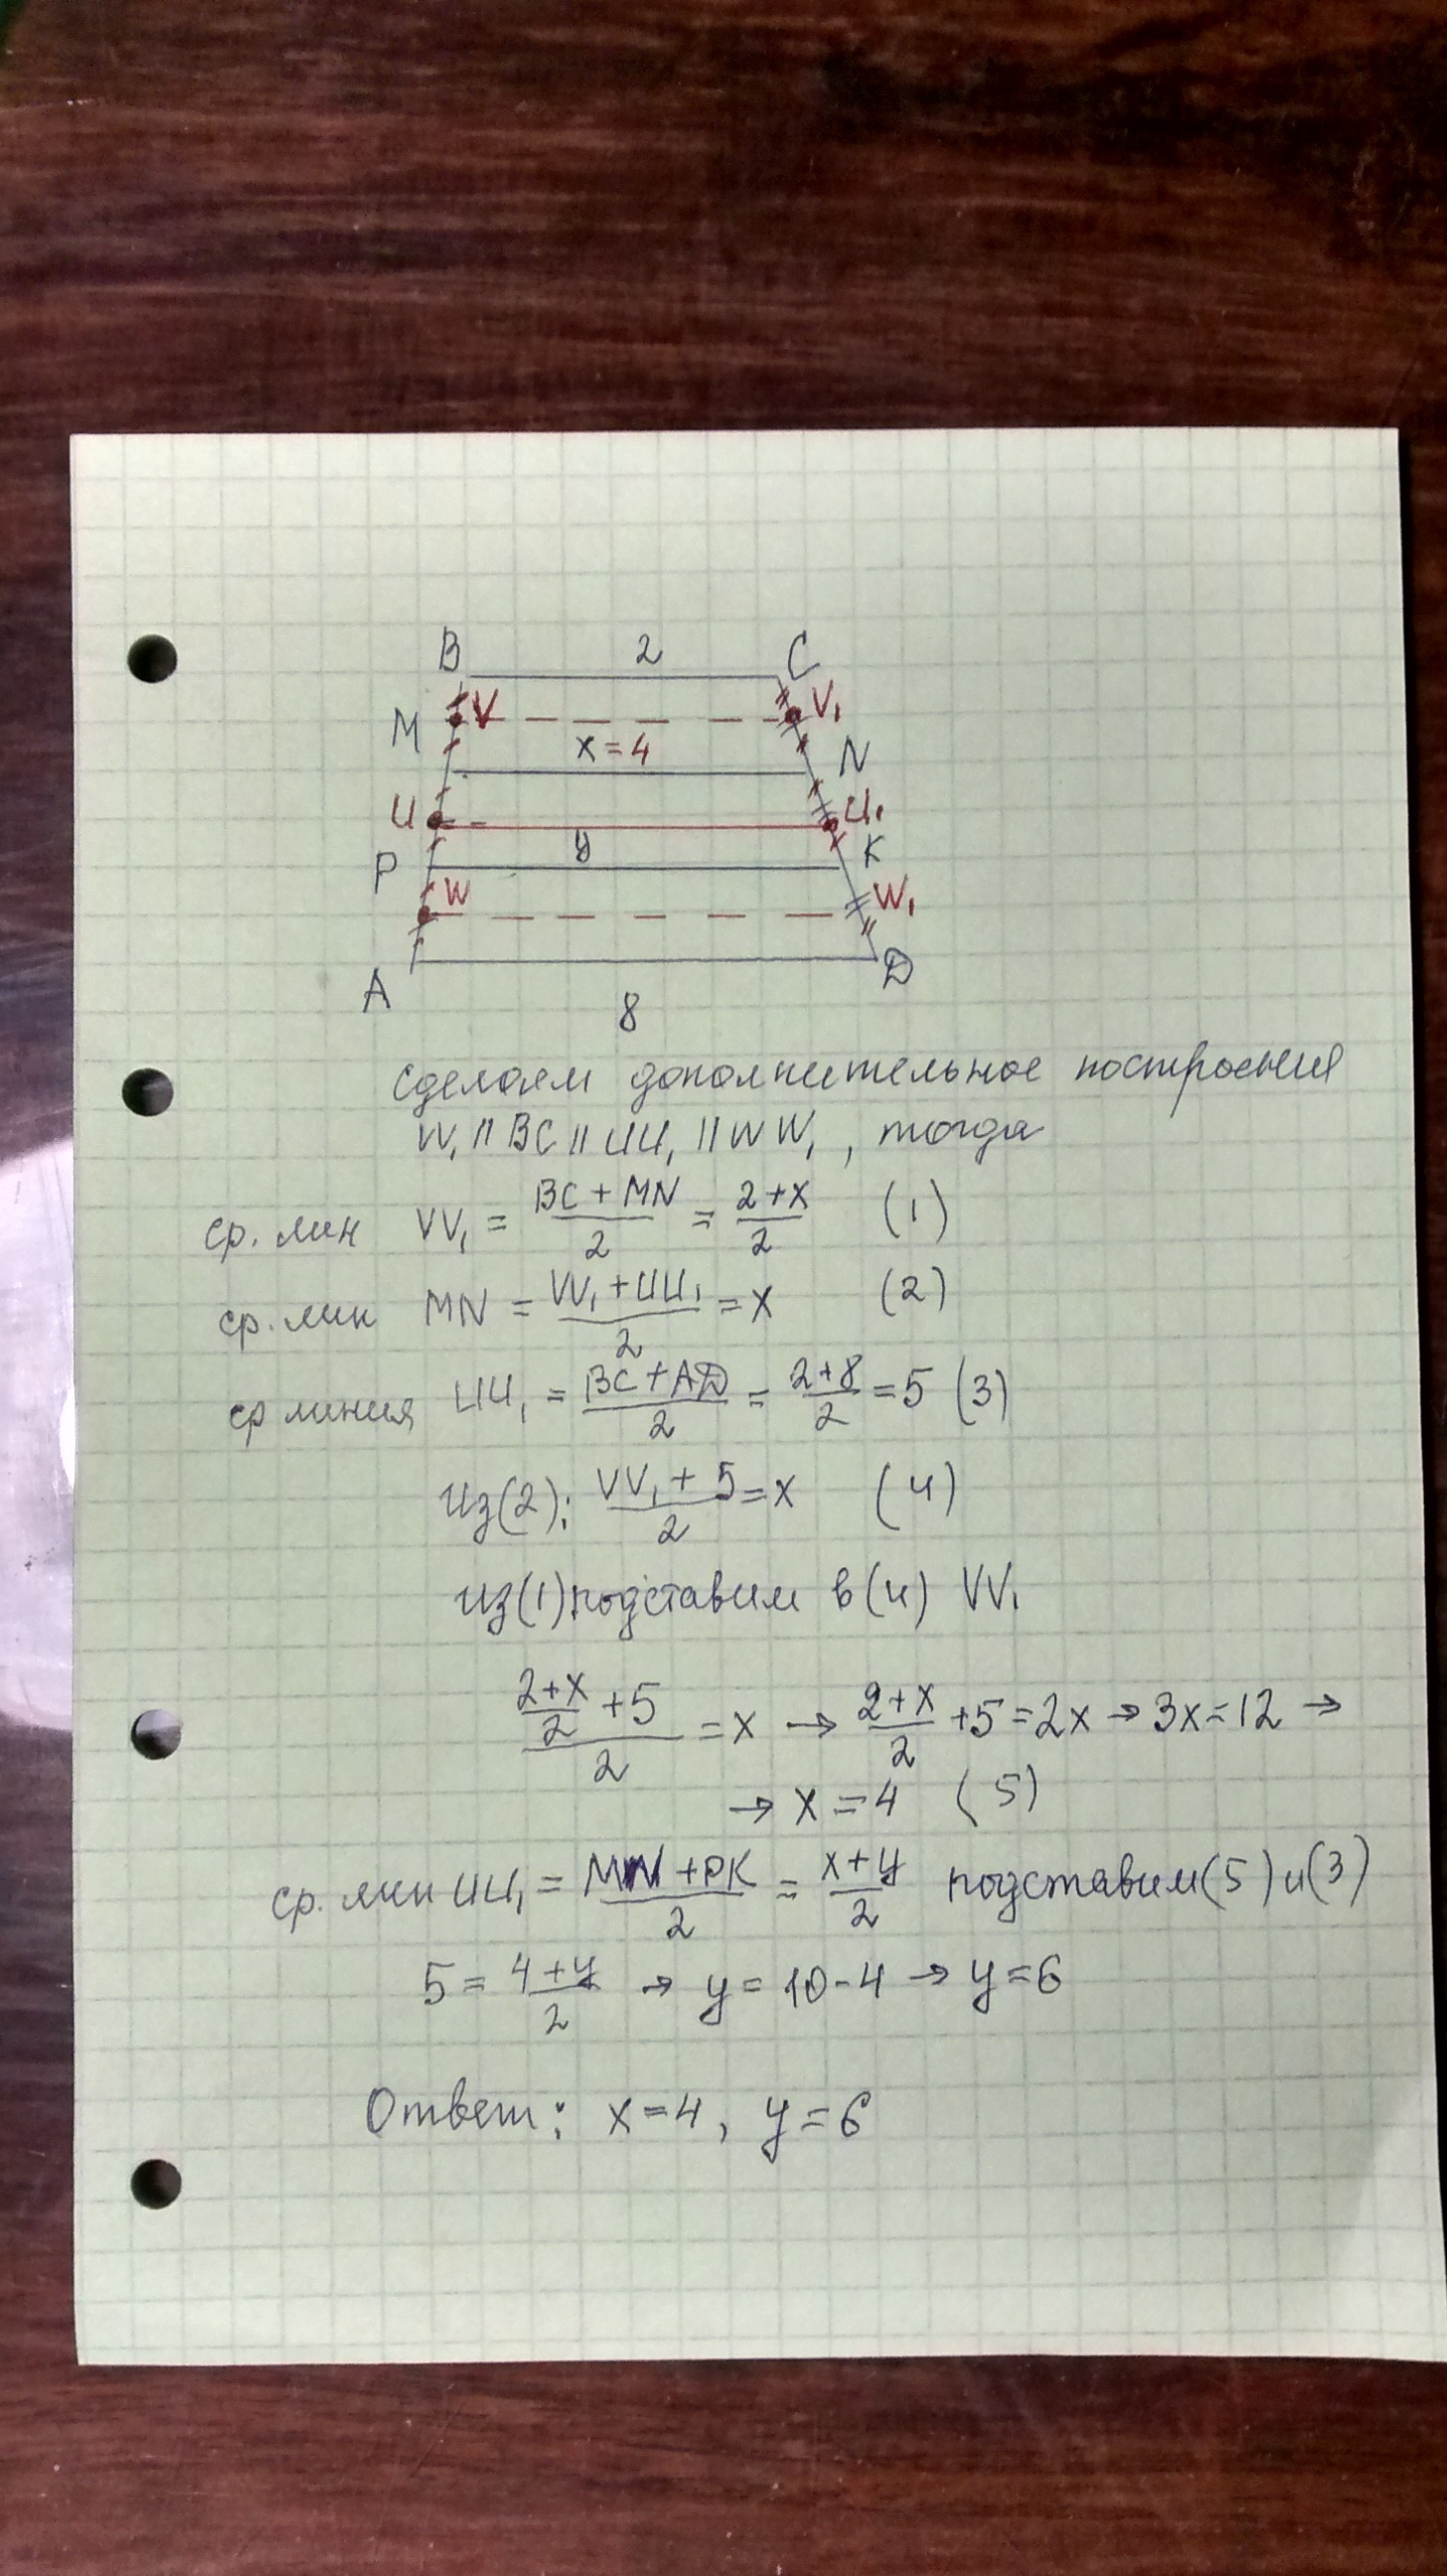 B 2 C
M V V₁
x=4 N
U U₁
P y K
W W₁
A D
8
Сделаем дополнительное построения
VV₁ || BC || UU₁ || WW₁, тогда
ср. лин VV₁ = (BC + MN)/2 = (2+x)/2 (1)
ср. лин MN = (VV₁ + UU₁)/2 = x (2)
ср линия UU₁ = (BC + AD)/2 = (2+8)/2 = 5 (3)
Из(2): (VV₁ + 5)/2 = x (4)
Из(1) подставим в (4) VV₁
((2+x)/2 + 5)/2 = x → (2+x)/2 + 5 = 2x → 3x = 12 →
→ x = 4 (5)
ср. лин UU₁ = (MN + PK)/2 = (x+y)/2 подставим (5) и (3)
5 = (4+y)/2 → y = 10 - 4 → y = 6
Ответ: x = 4, y = 6